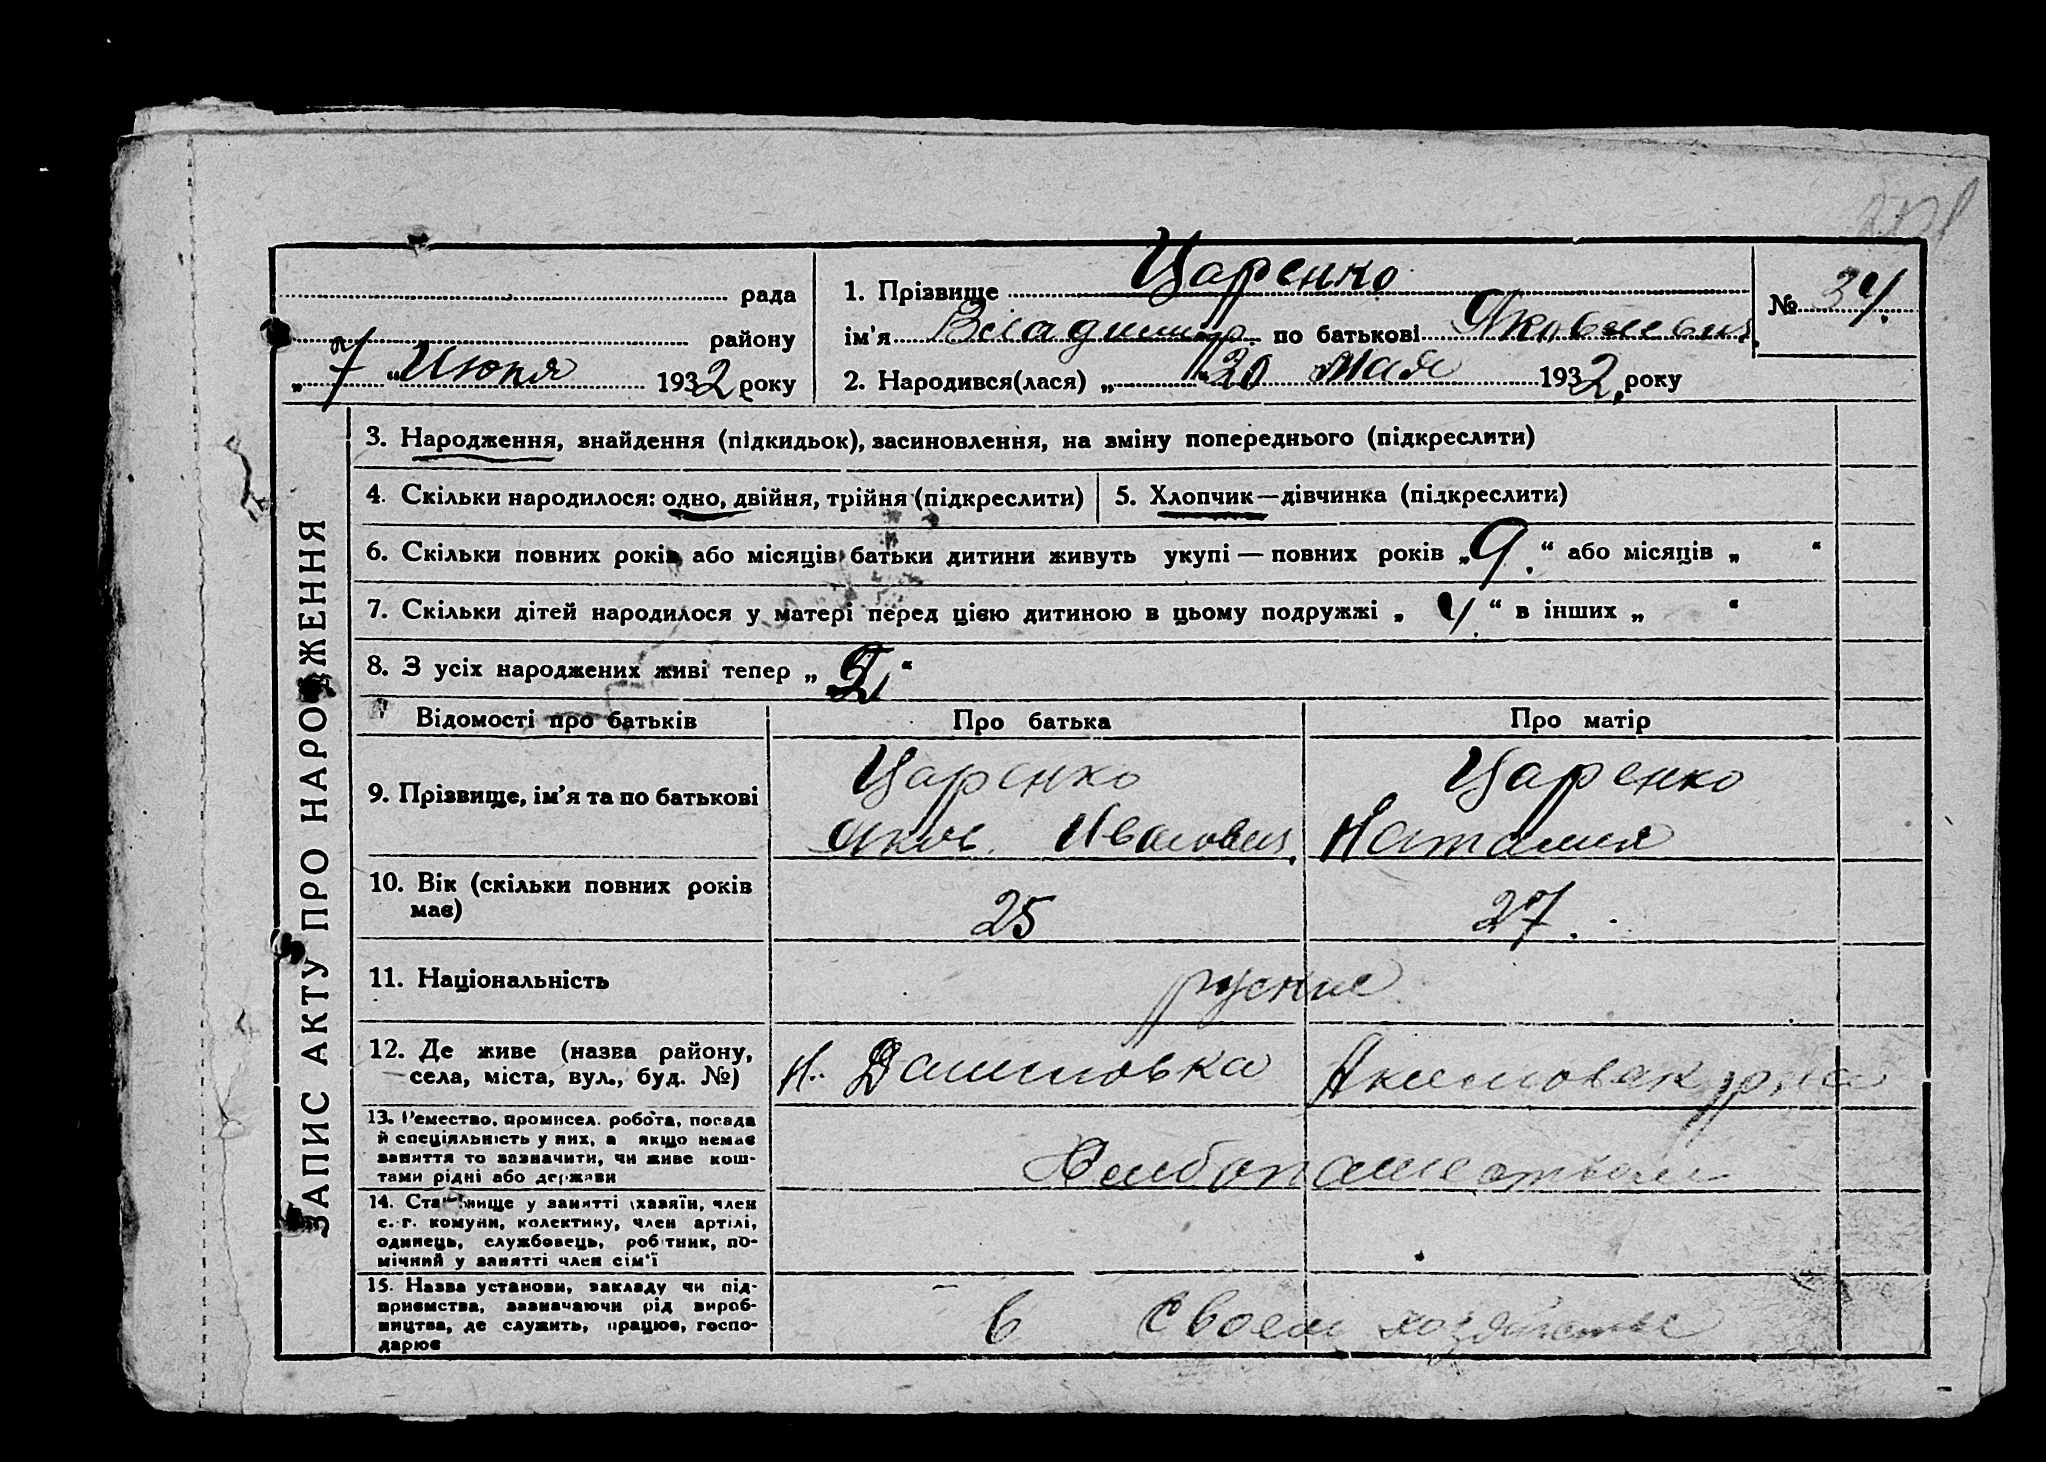 Царенко
рада
1. Прізвище
№ 34.
району
ім'я Владимир по батькові Яковлевич.
„ 7 " Июня 1932 року
2. Народився(лася) „ 30 мая 1932. року
ЗАПИС АКТУ ПРО НАРОДЖЕННЯ
3. Народження, знайдення (підкидьок), засиновлення, на зміну попереднього (підкреслити)
4. Скільки народилося: одно, двійня, трійня (підкреслити)
5. Хлопчик—дівчинка (підкреслити)
6. Скільки повних років або місяців батьки дитини живуть укупі — повних років „ 9. " або місяців „ "
7. Скільки дітей народилося у матері перед цією дитиною в цьому подружжі „ 4. " в інших „ "
8. З усіх народжених живі тепер „ "
Відомості про батьків
Про батька
Про матір
9. Прізвище, ім'я та по батькові
Царенко
Яков Иванович.
Царенко
Наталия
10. Вік (скільки повних років
має)
25
27.
11. Національність
руские
12. Де живе (назва району,
села, міста, вул., буд. №)
Н. Даниловка
Акимовск р-на
13. Ремество, промисел, робота, посада
й спеціяльність у них, а якщо немає
заняття то зазначити, чи живе кош-
тами рідні або держави
Хлебопашеством
14. Становище у занятті (хазяїн, член
с.-г. комуни, колективу, член артілі,
одинець, службовець, робітник, по-
мічний у занятті член сім'ї
15. Назва установи, закладу чи під-
приємства, зазначаючи рід вироб-
ництва, де служить, працює, госпо-
дарює
в своем хозяйстве